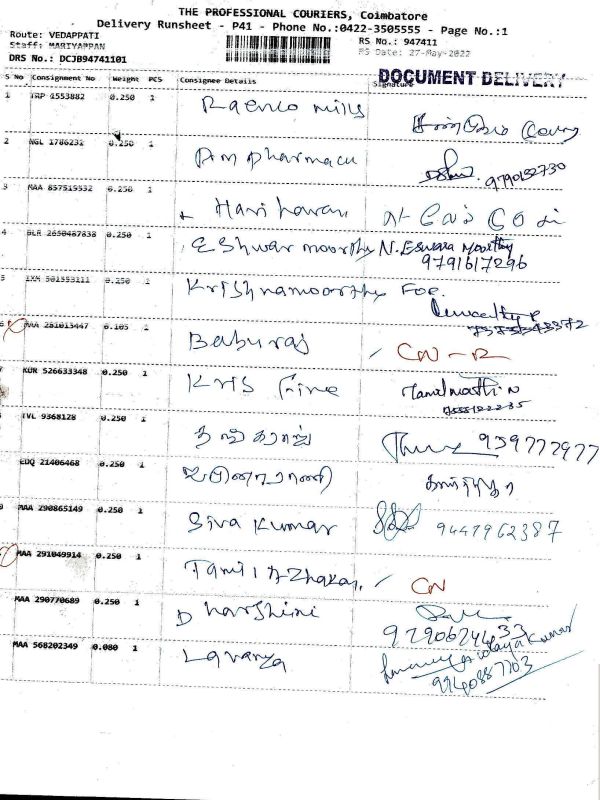 THE PROFESSIONAL COURIERS, Coimbatore
Delivery Runsheet - P41 - Phone No.:0422-3505555 - Page No.:1
Route: VEDAPPATI
Staff: MARIYAPPAN
DRS No.: DCJB94741101
RS No.: 947411
RS Date: 27-May-2022
DOCUMENT DELIVERY
S No Consignment No Weight PCS Consignee Details Signature
1 TRP 4553882 0.250 1 mills
2 NGL 1786232 0.250 1 pharmacy 9790182730
3 MAA 857519532 0.250 1 Hari haran
4 BLR 2650487838 0.250 1 Eshwar moorthy N. Eswara Moorthy
9791617296
5 0.250 1 Krishnamoorthy Foe.
6 MAA 281013447 0.105 1 Baburaj CN - R
7 KUR 526633348 0.250 1 Kris Fine Tamilmathi N
IVL 9368128 0.250 1 தங்கராஜ் 959772977
EDQ 21406468 0.250 1
MAA 290865149 0.250 1 Siva Kumar 9447962387
MAA 291049914 0.250 1 Tamil Azhakan CN
MAA 290770689 0.250 1 Dharshini
9790624433
MAA 568202349 0.080 1 Lavanya
9940887703